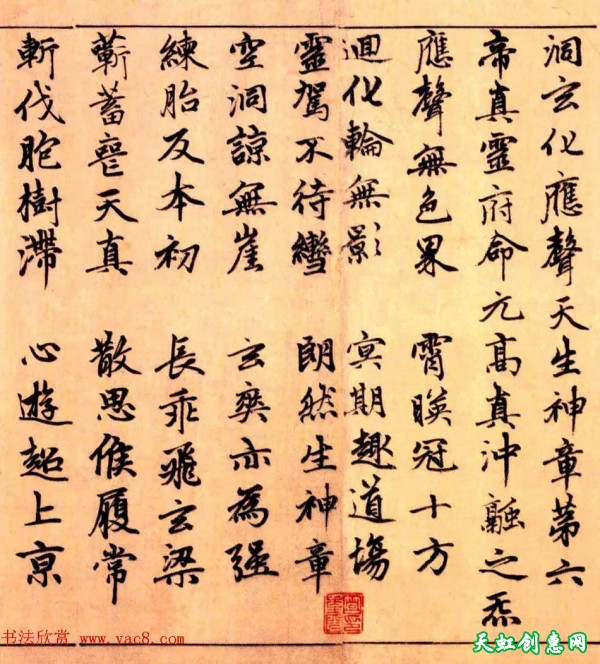 洞玄化應聲天生神章第六
帝真靈府命元高真沖融之炁
應聲無色界 霄暎冠十方
迴化輪無影 㝠期趣道場
靈駕不待轡 朗然生神章
空洞諒無崖 玄爽亦為強
練胎反本初 長乖飛玄梁
蘄蓄喪天真 散思候履常
斬伐胞樹滯 心遊超上京
书法欣赏 www.yac8.com
天虹创惠网